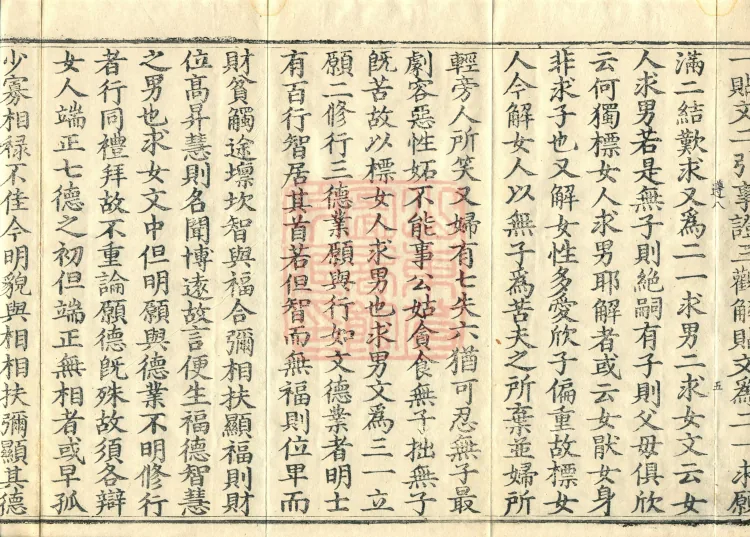 一貼文二引事證三觀解貼文為二一求願
滿二結歎求又為二一求男二求女文云女
人求男若是無子則絕嗣有子則父母俱欣
云何獨標女人求男耶解者或云女猒女身
非求子也又解女性多愛欣子偏重故標女
人今解女人以無子為苦夫之所棄並婦所
輕旁人所笑又婦有七失六猶可忍無子最
劇容惡性妬不能事公姑貪食無子拙無子
既苦故以標女人求男也求男文為三一立
願二修行三德業願與行如文德業者明士
有百行智居其首若但智而無福則位卑而
財貧觸途壈坎智與福合彌相扶顯福則財
位高昇慧則名聞博遠故言便生福德智慧
之男也求女文中但明願與德業不明修行
者行同禮拜故不重論願德既殊故須各辯
女人端正七德之初但端正無相者或早孤
少寡相祿不佳今明貌與相相扶彌顯其德
遵八
五